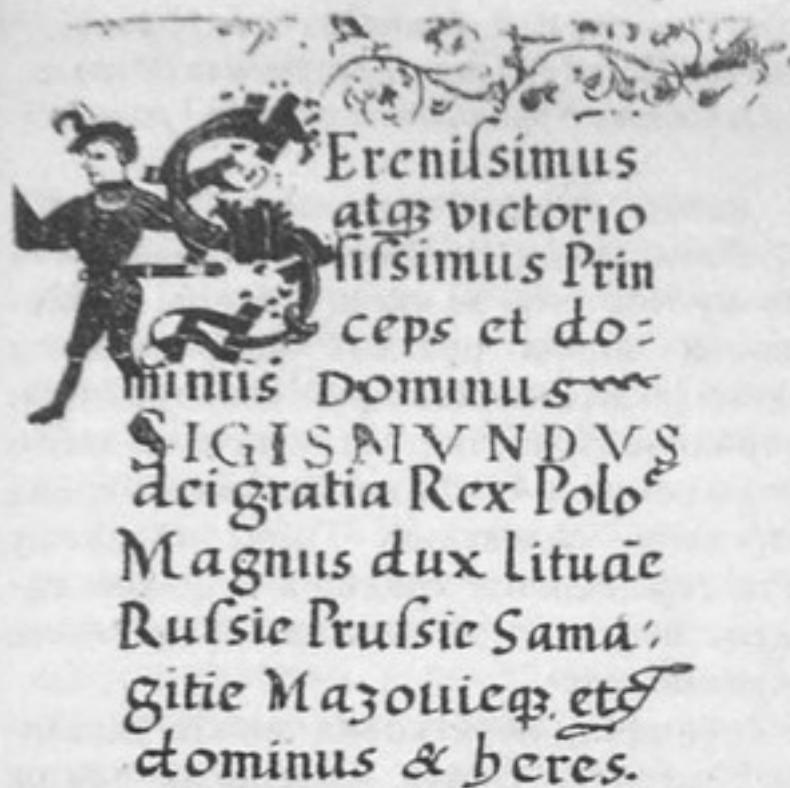 SEreniſsimus
atqꝫ victorio
ſiſsimus Prin
ceps et do-
minus Dominus
SIGISMVNDVS
dei gratia Rex Poloᵉ
Magnus dux Lituāe
Ruſsie Pruſsie Sama-
gitie Mazouieqꝫ. etc̃
dominus & heres.